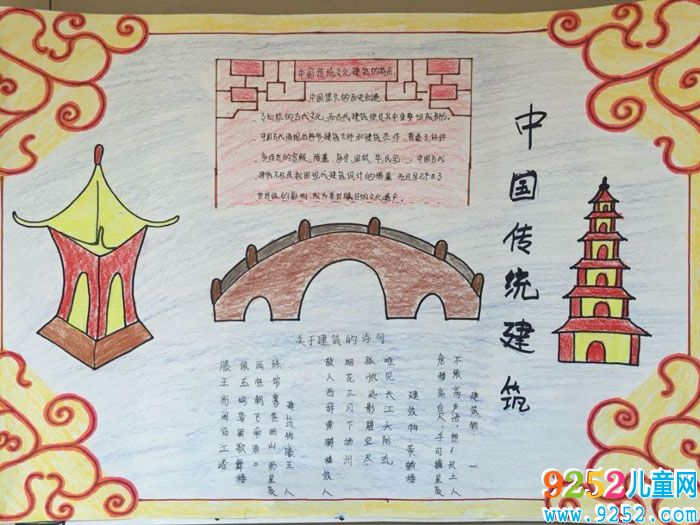 中国传统文化建筑的特点
中国悠久的历史创造
了灿烂的古代文化,而古代建筑便是其中重要组成部分。
中国古代涌现出许多建筑大师和建筑杰作,营造了许许
多传世的宫殿、陵墓、庙宇、园林、民宅
中国古代
建筑不仅是我国现代建筑设计的借鉴,而且早已产生了
世界性的影响,成为举世瞩目的文化遗产。
中国传统建筑
关于建筑的诗句
建筑物
不敢高声语,恐惊天上人
危楼高百尺,手可摘星辰
建筑物黄鹤楼
唯见长江天际流
孤帆远影碧空尽
烟花三月下扬州
故人西辞黄鹤楼
建筑物滕王
画栋朝飞南浦
佩玉鸣鸾罢歌舞
滕王高阁临江渚
9252儿童网
www.9252.com